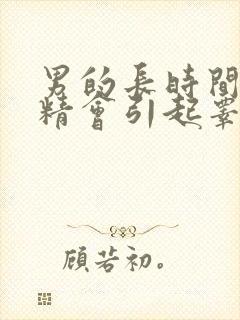 男的長時間
精會引起睪
顧若初。